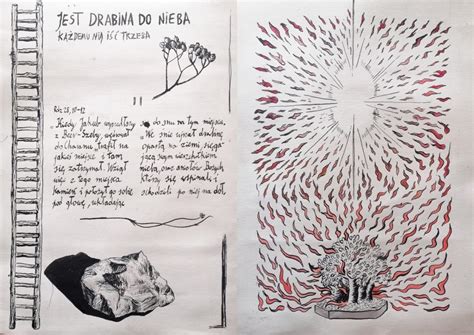 JEST DRABINA DO NIEBA
KAŻDEMU NIĄ IŚĆ TRZEBA
Rdz 28, 10-12
„Kiedy Jakub wyruszywszy
z Beer-Szeby, wędrował
do Charanu, trafił na
jakieś miejsce i tam
się zatrzymał. Wziął
więc z tego miejsca
kamień i położył go sobie
pod głowę, układając
się do snu na tym miejscu.
We śnie ujrzał drabinę
opartą na ziemi, sięga-
jącą swym wierzchołkiem
nieba, oraz aniołów Bożych,
którzy się wspinali i
schodzili po niej na dół.